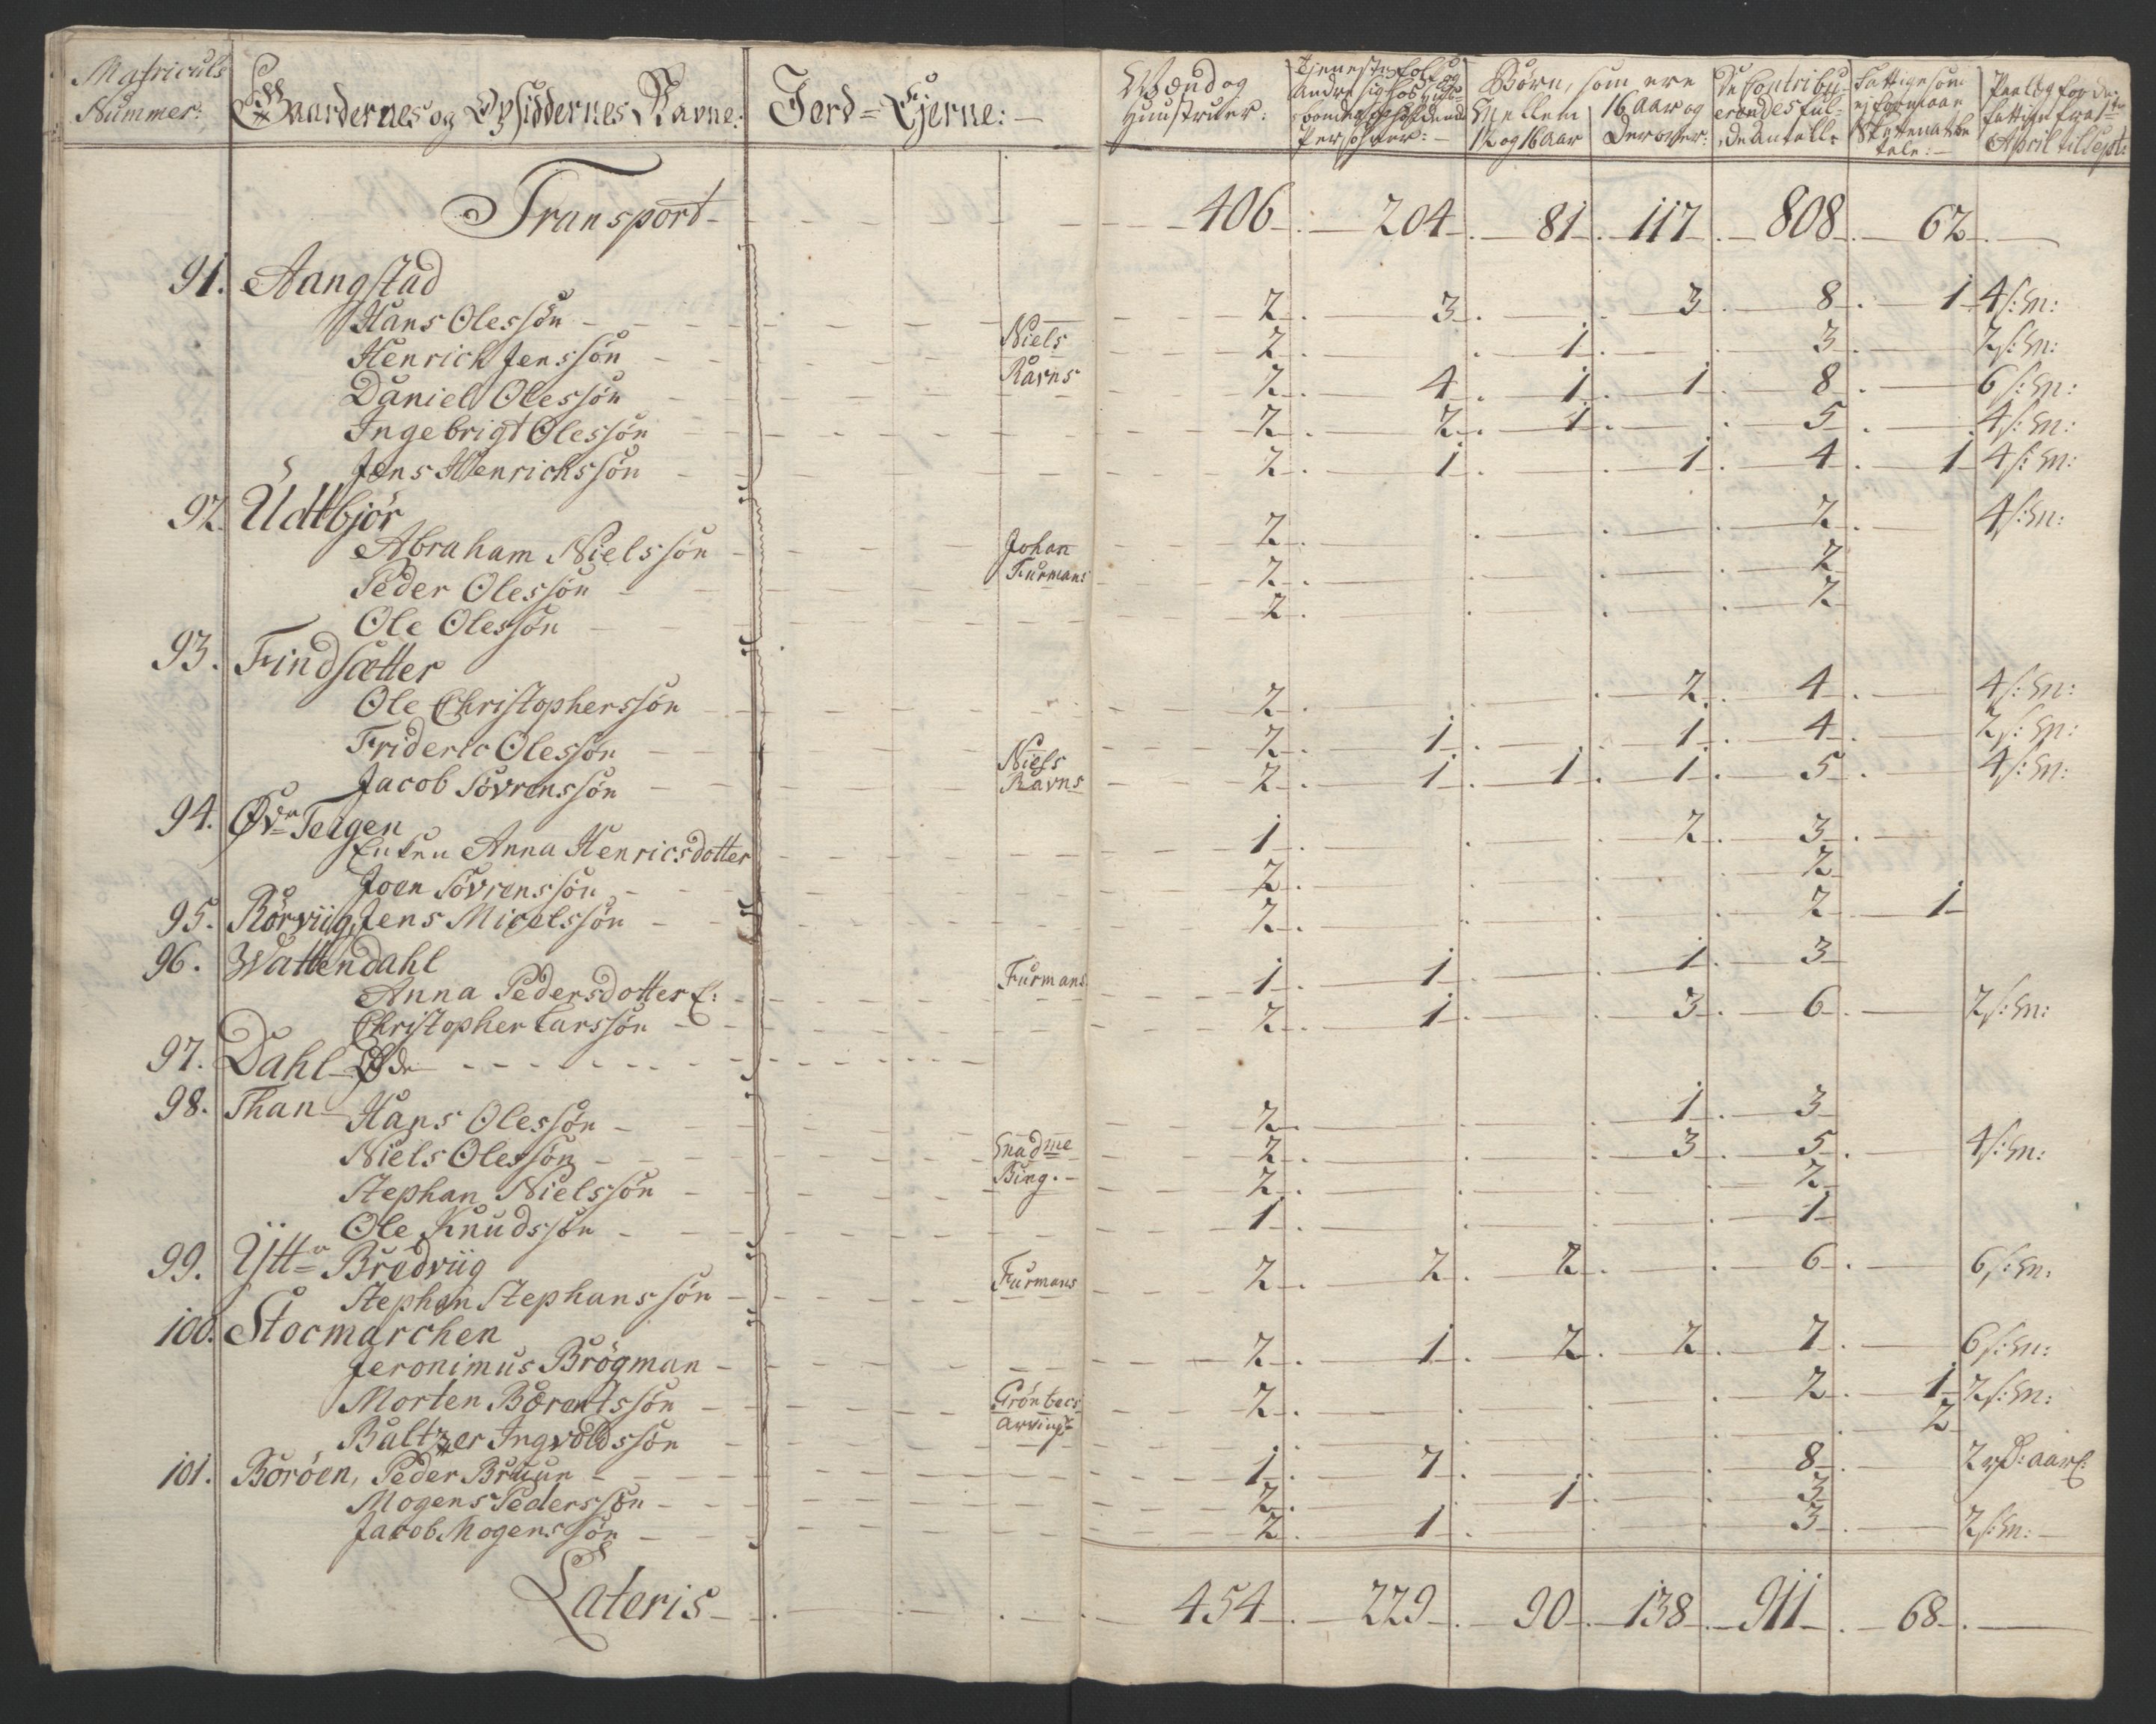 Matriculs Nummer: Gaardernes og Opsiddernes Navne: Jord-Ejerne: Mænd og Huustruer: Tjenestefolk og andre sig hos Huusbonder opholdende Personer: Børn, som ere Mellem 12 og 16 Aar 16 Aar og derover: De Contribuerendes fulde Antall: Fattige som ej formaar Skatten at betale: Paalæg for de fattige fra 1te April til Sept:
Transport 406 204 81 117 808 62
91. Aangstad
Hans Olessøn 2 3 3 8 1 4 s: M:
Henrich Jenssøn Niels 2 1 3 2 s: M:
Daniel Olessøn Ravns 2 4 1 1 8 6 s: M:
Ingebrigt Olessøn 2 2 1 5 4 s: M:
Jens Henrichssøn 2 1 1 4 1 4 s: M:
92. Udtbjör
Abraham Nielssøn Johan 2 2 4 s: M:
Peder Olessøn Furmans 2 2
Ole Olessøn 2 2
93. Findsætter
Ole Christopherssøn 2 2 4 4 s: M:
Frideric Olessøn Niels 2 1 1 4 2 s: M:
Jacob Sövrenssøn Ravns 2 1 1 1 5 4 s: M:
94. Øvr Teigen
Enken Anna Henricsdotter 1 2 3
Joen Sövrenssøn 2 2
95. Rörviig, Jens Micelssøn 2 2 1
96. Wattendahl
Anna Pedersdotter E: Furmans 1 1 1 3
Christopher Larssøn 2 1 3 6 2 s: M:
97. Dahl Øde
98. Than Hans Olessøn 2 1 3
Niels Olessøn Madme 2 3 5 4 s: M:
Stephan Nielssøn Bing. 2 2
Ole Knudssøn 1 1
99. Ytt Bredviig
Stephen Stephanssøn Furmans 2 2 2 6 6 s: M:
100. Stocmarchen
Jeronimus Brögman 2 1 2 2 7 6 s: M:
Morten Bærentssøn Grönbecs 2 2 1 2 s: M:
Baltzer Ingvoldssøn Arving 2
101. Boröen, Peder Bruun 1 7 8 2 rd: aarl:
Mogens Pederssøn 2 1 3
Jacob Mogenssøn 2 1 3 2 s: M:
Lateris 454 229 90 138 911 68